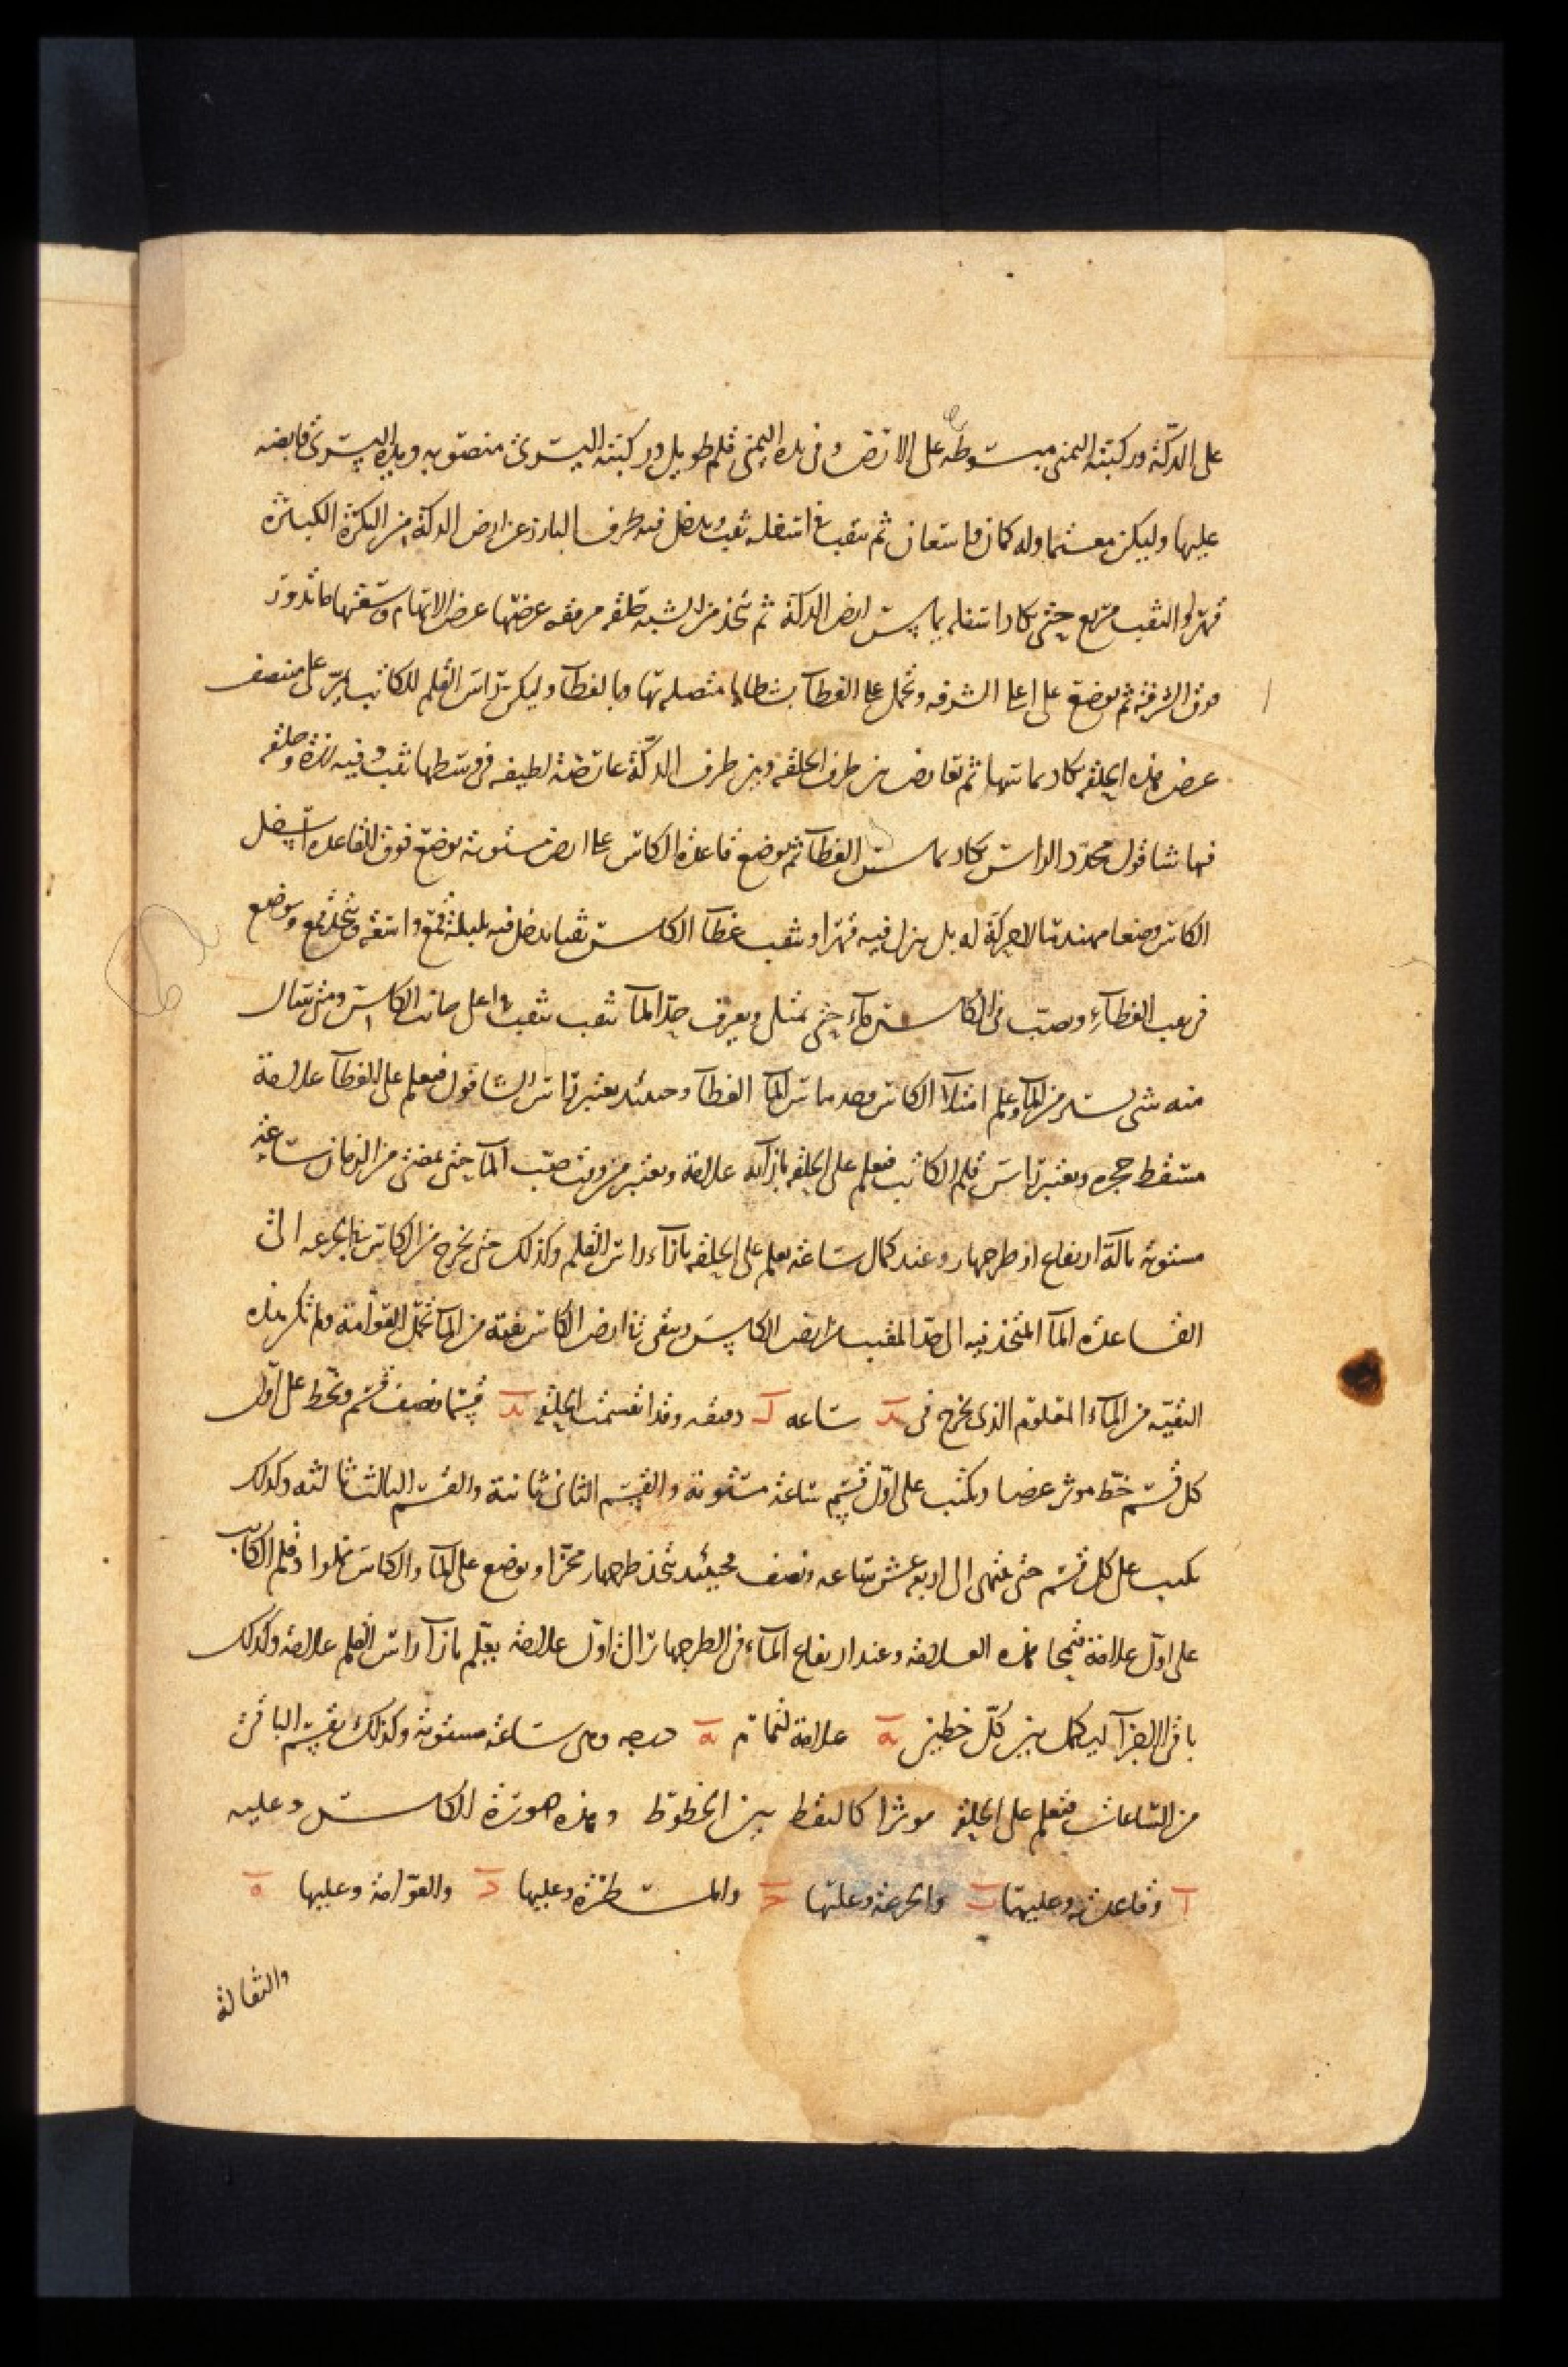 على الدكة وركبته اليمنى مبسوطة على الارض وفى يده اليمنى قلم طويل وركبته اليسرى منصوبه ويده اليسرى قابضه
عليها وليكن معتما وله كمان واسعان ثم يثقب فى اسفله ثقب ويدخل فيه طرف البارز عن ارض الدكة من البكرة الكبيرة
قهرا والثقب مربع حتى يكاد اسفله يماس ارض الدكة ثم تتخذ من الشبه حلقه مرققه عرضها عرض الابهام وسعتها ما تدور
فوق الشرفة ثم توضع على اعلى الشرفه وتحمل على الغطآ بشظايا متصله بها وبالغطآ وليكن راس القلم للكاتب يمر على منتصف
عرض هذه الحلقه يكاد يماسها ثم تعارض من طرف الحلقه وبين طرف الدكة عارضة لطيفه فى وسطها ثقب وفيه رزة وحلقه
فيها شاقول محدد الراس يكاد يماس الغطآ ثم توضع قاعدة الكاس على ارض مستويه ويوضع فوق القاعده اسفل
الكاس وضعا مهندما لا حركة له بل ينزل فيه قهرا ويثقب غطآ الكاس ثقبا يدخل فيه بلبلة قمع واسعه وينخل قمع ويوضع
فى ثقب الغطآء ويصب فى الكاس مآء حتى يمتلى ويعرف حد المآ بثقب يثقب فى اعلى جانب الكاس ومتى سال
منه شى يسير من المآ وعلم امتلآ الكاس وحد مماس المآ الغطآ وحينئذ يعتبر راس الشاقول فيعلم على الغطآ علامة
مسقط حجره ويعتبر راس قلم الكاتب فيعلم على الحلقه بازآئه علامة ويعتبر من وقت صب المآ حتى يمضى من الزمان ساعة
مستويه بآلة ارتفاع او طرجهار وعند كمال ساعة يعلم على الحلقه بازآء راس القلم وكذلك حتى يخرج من الكاس فى الجرعه الى
القاعدة المآ المتخذ فيه الى حد المقبب من ارض الكاس ويبقى فى ارض الكاس بقية من المآ تحمل العوامة ولم تكن هذه
البقيه من المآء المعلوم الذى يخرج فى يد ساعه ل دقيقه وقد انقسمت الحلقه يد قسما ونصف قسم ويخط على اول
كل قسم خط موثر عرضا ويكتب على اول قسم ساعة مستويه والقسم الثانى ثانية والقسم الثالث ثالثه وكذلك
يكتب على كل قسم حتى ينتهى الى اربع عشر ساعه ونصف فحينئذ يتخذ طرجهار محررا ويوضع على المآ والكاس مملوا وقلم الكاتب
على اول علامة فيمحا هذه العلامه وعند ارتفاع المآء فى الطرجهار الى اول علامة يعلم بازآ راس القلم علامة وكذلك
باقى الاجزآ ليكمل بين كل خطين يه علامة لتمام يه درجه وهى ساعة مستوية وكذلك يقسم الباقى
من الساعات فيعلم على الحلقه موثرا كالنقط بين الخطوط وهذه صورة الكاس وعليه
ا وقاعدته وعليها ب والجرعة وعليها ج والمسطرة وعليها د والعوامة وعليها ه
والثقالة